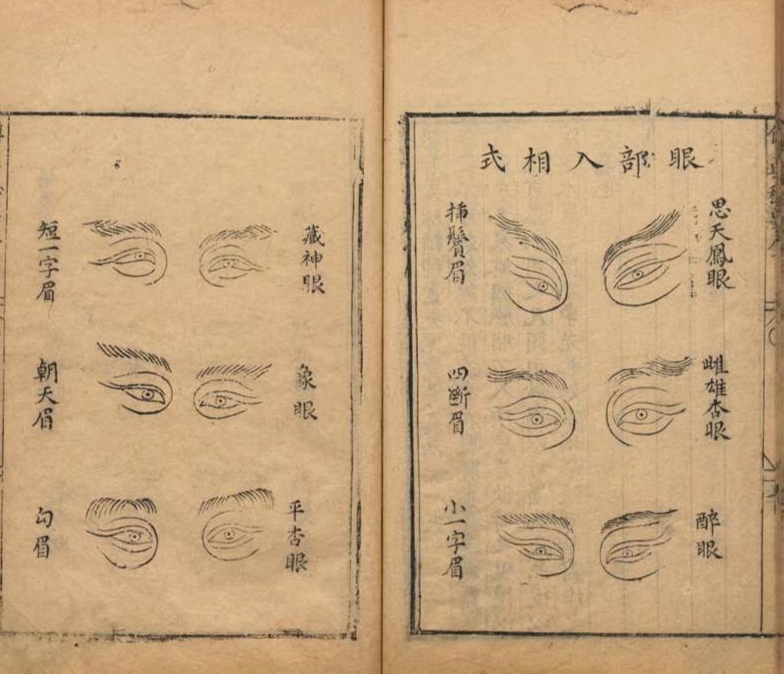 眼部入相式
思天鳳眼
插鬢眉
雌雄杏眼
四斷眉
醉眼
小一字眉
藏神眼
短一字眉
象眼
朝天眉
平杏眼
勾眉